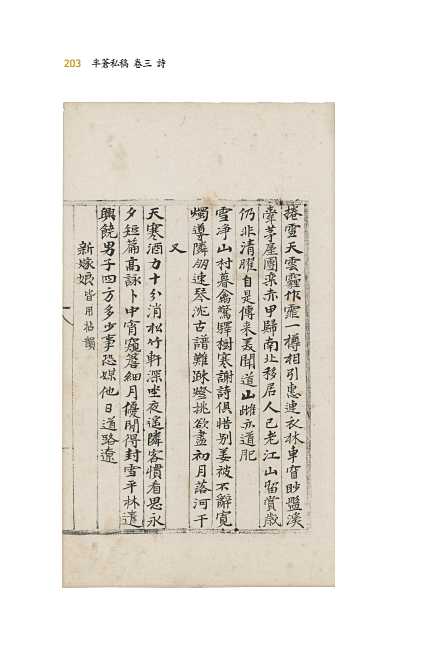 203 半蒼私稿 卷三 詩
捲雪天雲霾作霏一樽相引惠連衣林車窅眇盤溪
牽茅屋團欒赤甲歸南北移居人已老江山留賞歲
仍非清臞自是傳來美聞道山雌亦道肥
雪净山村暮禽驚驛樹寒謝詩俱惜别姜被不辭寬
燭導隣朋速琴沈古譜難疎燈挑欲盡初月落河干
又
天寒酒力十分消松竹軒深坐夜遙隣客慣看思永
夕短篇高詠卜中宵窺簷細月優閒得封雪平林遠
興饒男子四方多少事恐媒他日道路遼
新嫁娘 皆用拈韻